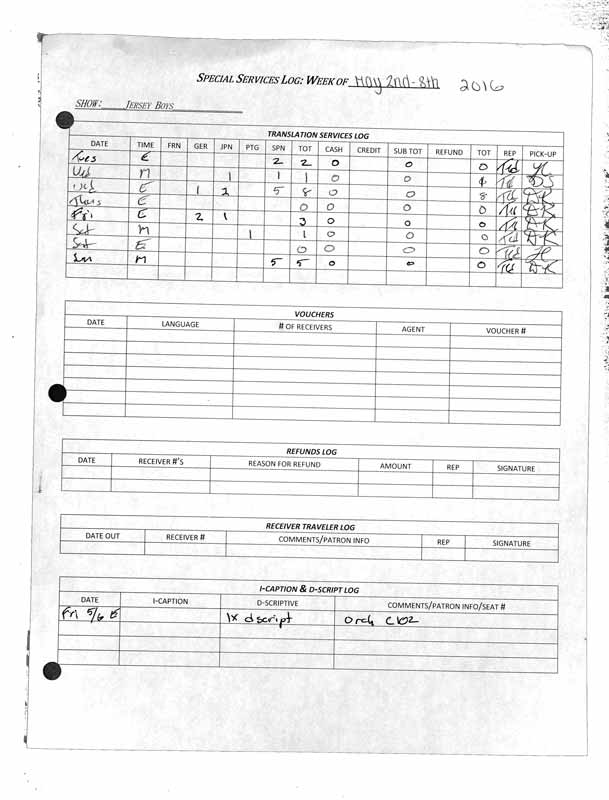 SPECIAL SERVICES LOG: WEEK OF May 2nd-8th 2016
SHOW: JERSEY BOYS
TRANSLATION SERVICES LOG
DATE TIME FRN GER JPN PTG SPN TOT CASH CREDIT SUB TOT REFUND TOT REP PICK-UP
Tues E 2 2 0 0 0 Td
Wed M 1 1 1 0 0 Td
Wed E 1 2 5 8 0 0 8 Td DK
Thurs E 0 0 0 0 Td DK
Fri E 2 1 3 0 0 0 Td DK
Sat M 1 1 0 0 0 Td DK
Sat E 0 0 0 0 Td
Sun M 5 5 0 0 0 Td DK
VOUCHERS
DATE LANGUAGE # OF RECEIVERS AGENT VOUCHER #
REFUNDS LOG
DATE RECEIVER #'S REASON FOR REFUND AMOUNT REP SIGNATURE
RECEIVER TRAVELER LOG
DATE OUT RECEIVER # COMMENTS/PATRON INFO REP SIGNATURE
I-CAPTION & D-SCRIPT LOG
DATE I-CAPTION D-SCRIPTIVE COMMENTS/PATRON INFO/SEAT #
Fri 5/6 E 1x dscript Orch C102